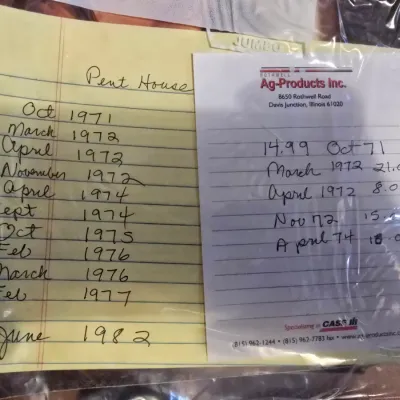 Pent House
Oct 1971
March 1972
April 1972
November 1972
April 1974
Sept 1974
Oct 1975
Feb 1976
March 1976
Feb 1977
June 1982
JUMBO
Ag-Products Inc.
8650 Rothwell Road
Davis Junction, Illinois 61020
14.99 Oct 71
March 1972 21.0
April 1972 8.0
Nov 72 15.
April 74
Specializing in CASE IH
(815) 962-1244 • (815) 962-7783 fax •